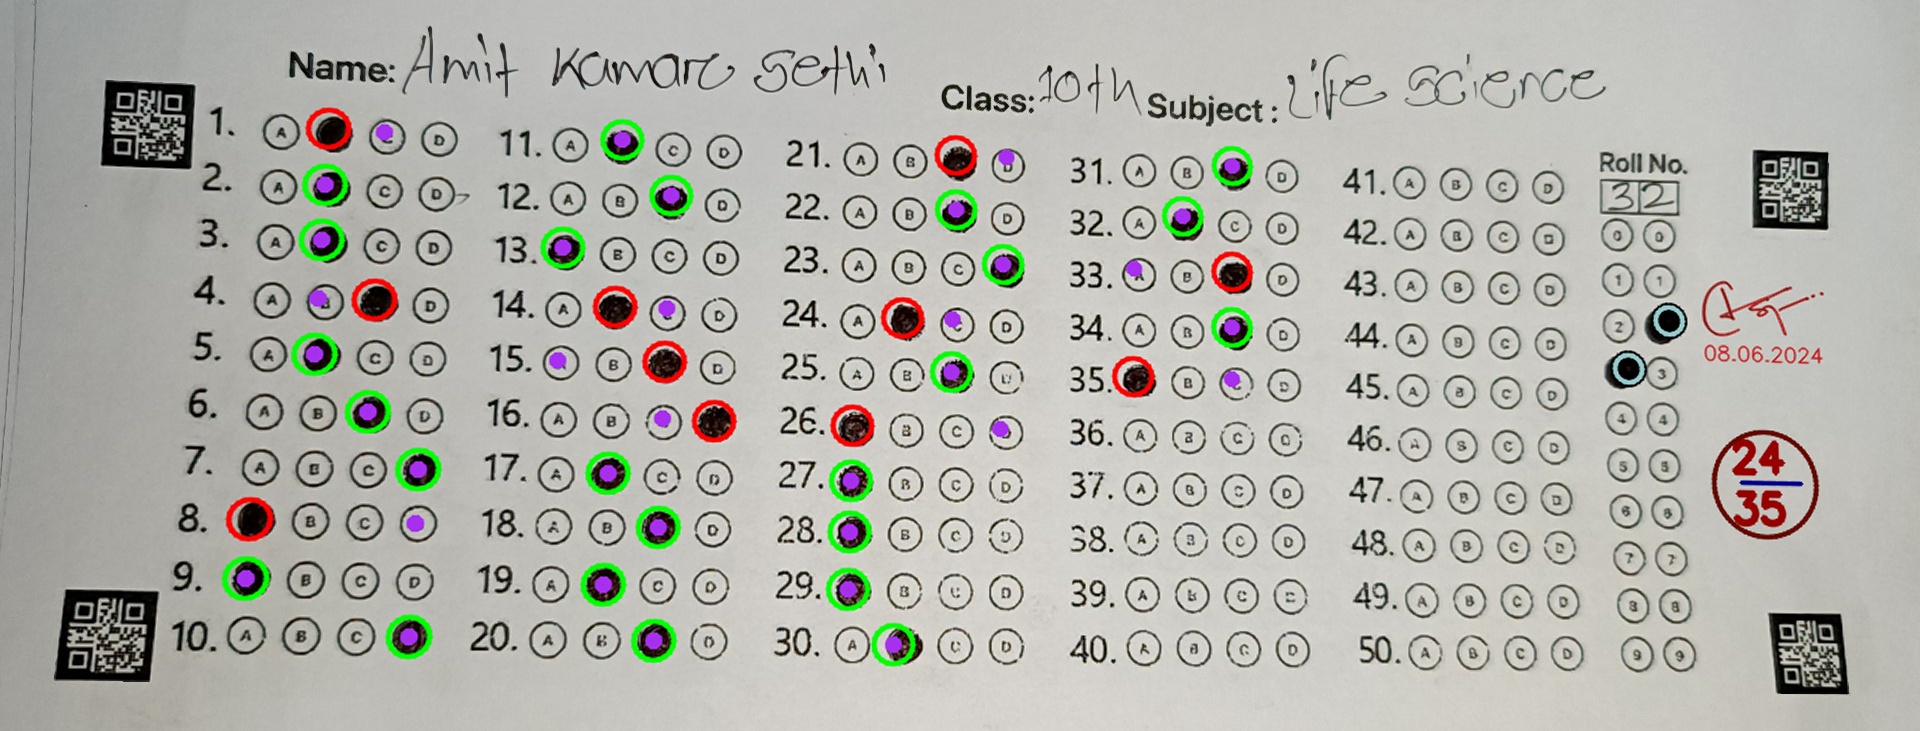 Name: Amit Kumar Sethi
Class: 10th Subject: Life Science
1. A D
2. A C D
3. A C D
4. A D
5. A C D
6. A B D
7. A B C
8. B C
9. B C D
10. A B C
11. A C D
12. A B D
13. B C D
14. A D
15. B D
16. A B
17. A C D
18. A B D
19. A C D
20. A B D
21. A B
22. A B D
23. A B C
24. A D
25. A B D
26. B C
27. B C D
28. B C D
29. B C D
30. A C D
31. A B D
32. A C D
33. B D
34. A B D
35. B D
36. A B C D
37. A B C D
38. A B C D
39. A B C D
40. A B C D
41. A B C D
42. A B C D
43. A B C D
44. A B C D
45. A B C D
46. A B C D
47. A B C D
48. A B C D
49. A B C D
50. A B C D
Roll No.
32
0 0
1 1
2
3
4 4
5 5
6 6
7 7
8 8
9 9
08.06.2024
24
35